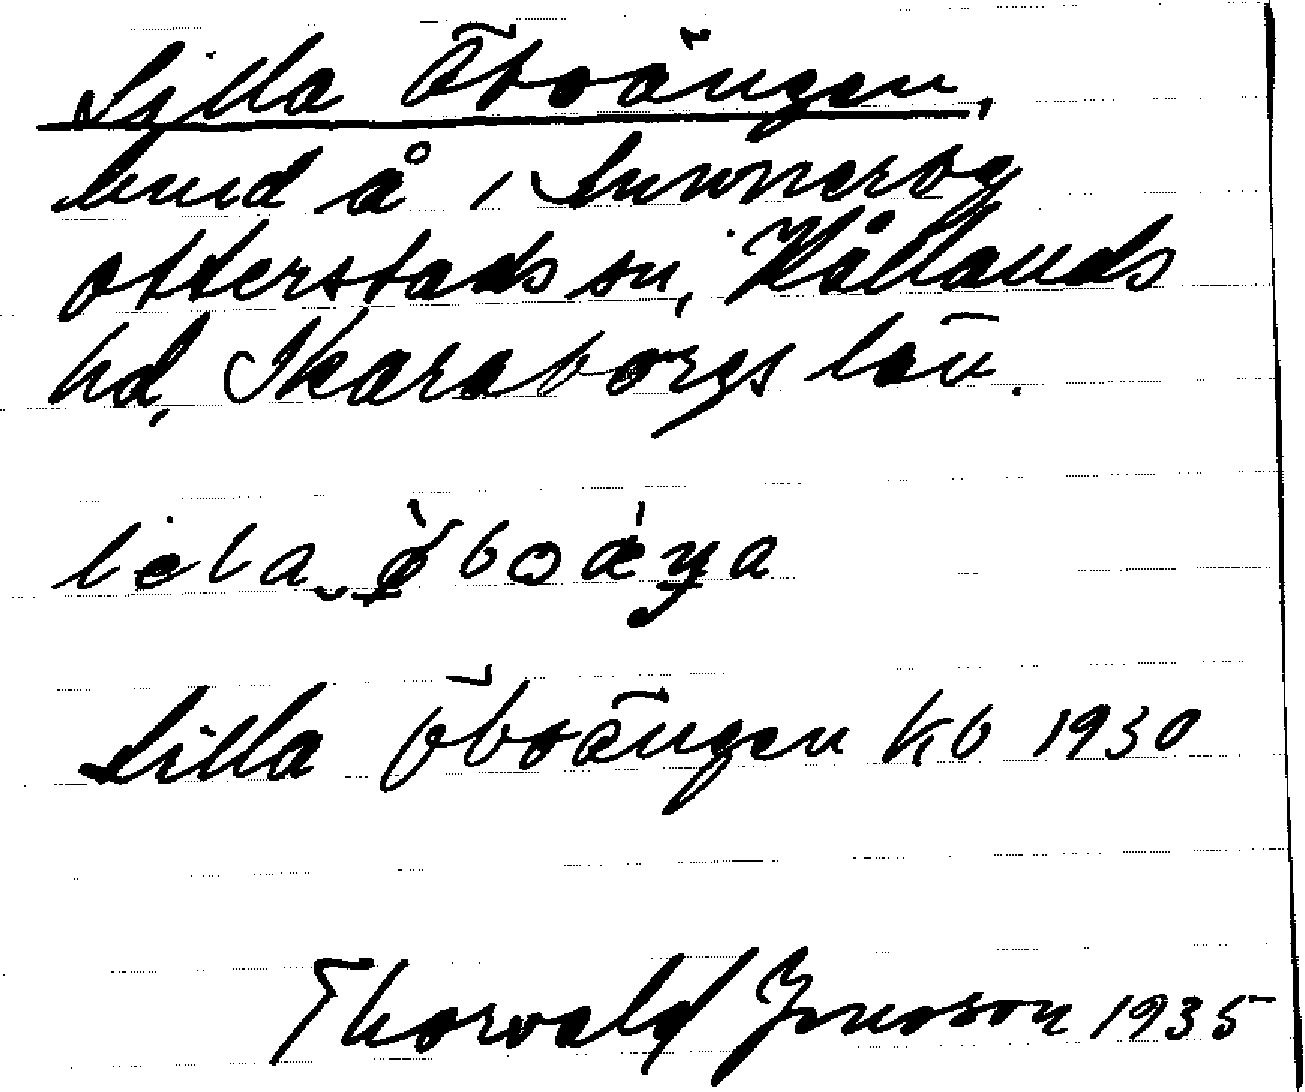 Lilla Öboängen,
lund å i Sunnersby
Otterstads sn, Kållands
hd, Skaraborgs län.
lila öboäŋa
Lilla Öboängen Kb 1930
Thorvald Jonsson 1935